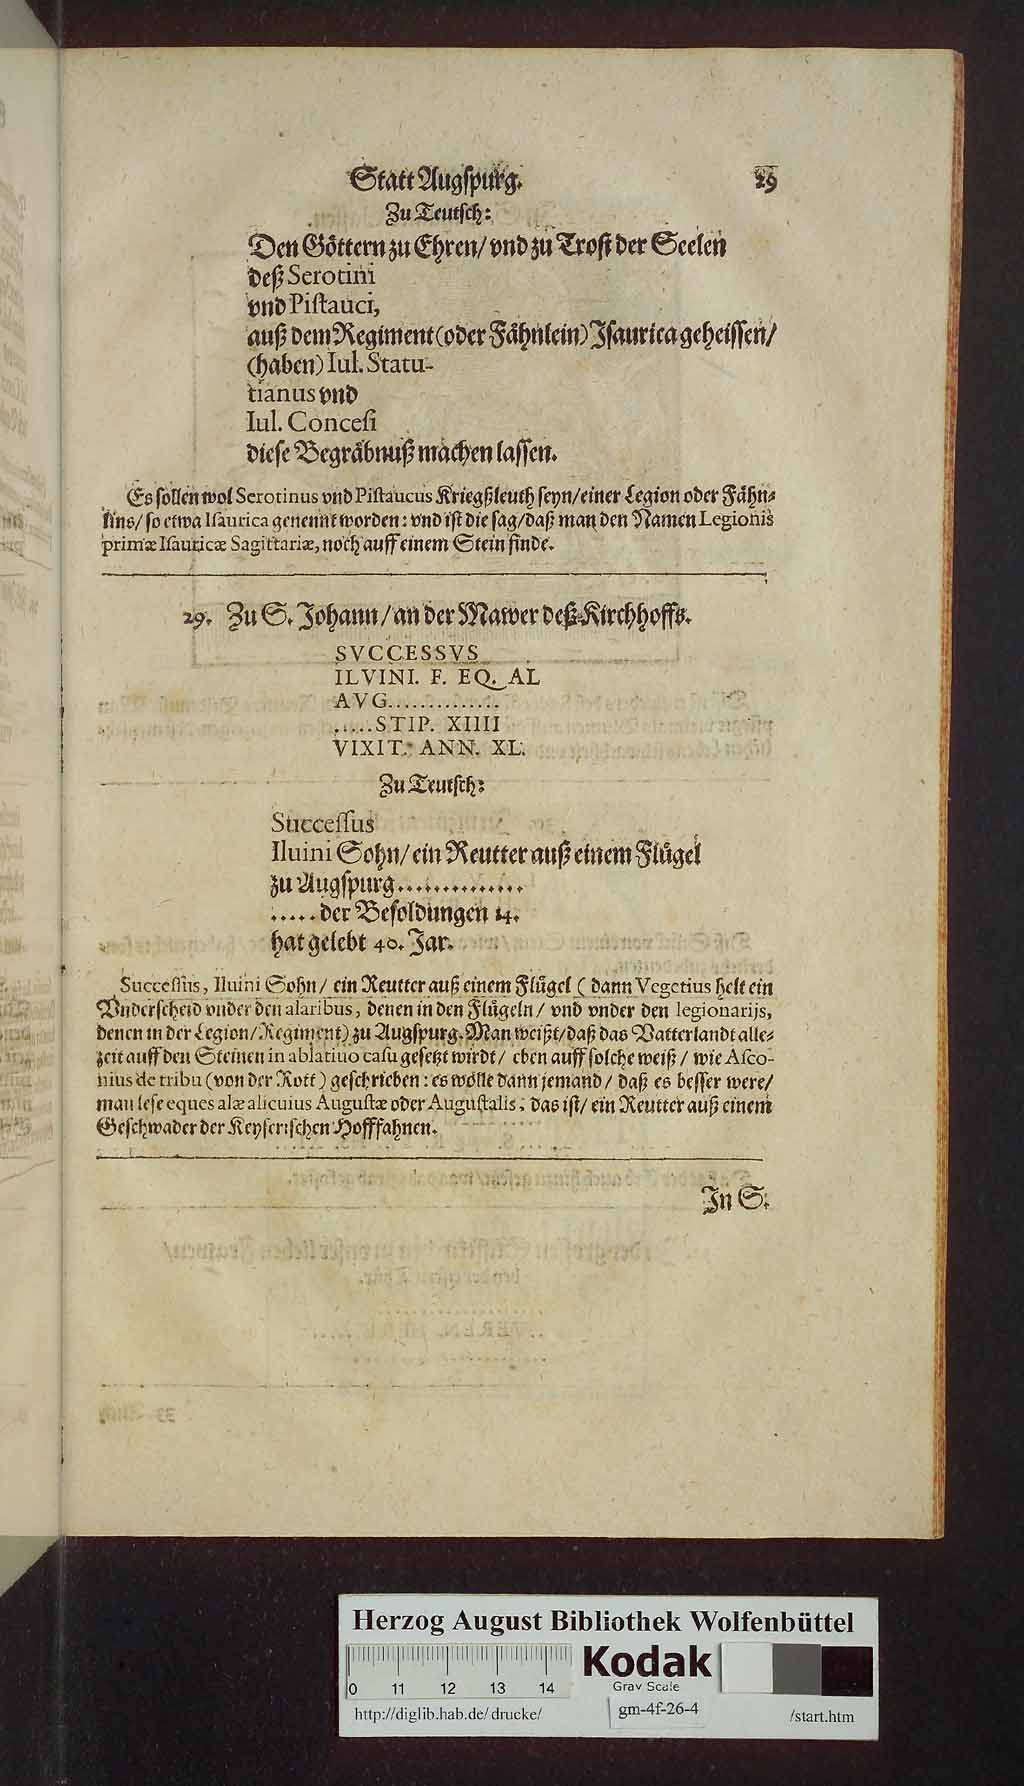 Statt Augſpurg. 29
Zu Teutſch:
Den Göttern zu Ehren/ vnd zu Troſt der Seelen
deß Serotini
vnd Piſtauci,
auß dem Regiment (oder Fähnlein) Iſaurica geheiſſen/
(haben) Iul. Statu-
tianus vnd
Iul. Conceſi
dieſe Begräbnuß machen laſſen.
Es ſollen wol Serotinus vnd Piſtaucus Kriegßleuth ſeyn/ einer Legion oder Fähn-
lins/ ſo etwa Iſaurica genennt worden: vnd iſt die ſag/ daß man den Namen Legionis
primæ Iſauricæ Sagittariæ, noch auff einem Stein finde.
29. Zu S. Johann/ an der Mawer deß Kirchhoffs.
SVCCESSVS
ILVINI. F. EQ. AL
AVG..............
.....STIP. XIIII
VIXIT. ANN. XL.
Zu Teutſch:
Succeſſus
Iluini Sohn/ ein Reutter auß einem Flügel
zu Augſpurg..............
.....der Beſoldungen 14.
hat gelebt 40. Jar.
Succeſſus, Iluini Sohn/ ein Reutter auß einem Flügel ( dann Vegetius helt ein
Vnderſcheid vnder den alaribus, denen in den Flügeln/ vnd vnder den legionarijs,
denen in der Legion/ Regiment) zu Augſpurg. Man weißt/ daß das Vatterlandt alle-
zeit auff den Steinen in ablatiuo caſu geſetzt wirdt/ eben auff ſolche weiß/ wie Aſco-
nius de tribu (von der Rott) geſchrieben: es wölle dann jemand/ daß es beſſer were/
man leſe eques alæ alicuius Auguſtæ oder Auguſtalis, das iſt/ ein Reutter auß einem
Geſchwader der Keyſeriſchen Hofffahnen.
In S.
Herzog August Bibliothek Wolfenbüttel
0 11 12 13 14
Kodak
Gray Scale
http://diglib.hab.de/drucke/ gm-4f-26-4 /start.htm